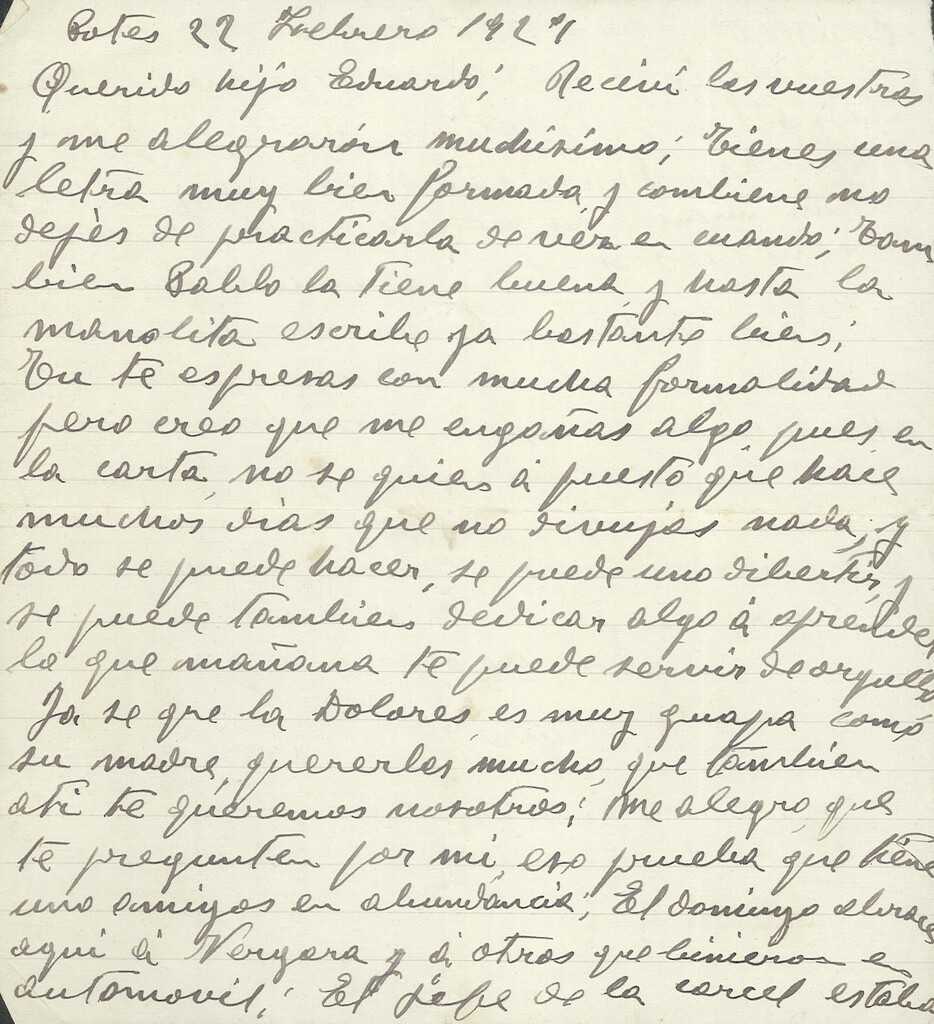 Potes 22 Febrero 1927
Querido hijo Eduardo; Reciví las vuestras
y me alegrarón muchísimo; Tienes una
letra muy bien formada y combiene no
dejés de practicarla de véz en cuando; Tam
bien Pablo la tiene buena y hasta la
manolita escribe ya bastante bien;
Tu te espresas con mucha formalidad
pero creo que me engañas algo, pues en
la carta, no se quien á puesto que hace
muchos días que no divujas nada, y
todo se puede hacer, se puede uno dibertir, y
se puede tambien dedicar algo á aprender
lo que mañana te puede servir de orgullo
Ya se que la Dolores es muy guapa como
su madre, quererlas mucho, que tambien
ati te queremos nosotros; Me alegro que
te pregunten por mi, eso prueba que tiene
uno amigos en abundáncia; El domingo abracé
aquí á Vergara y á otros que binieron en
automovil; El jefe de la carcel estaba